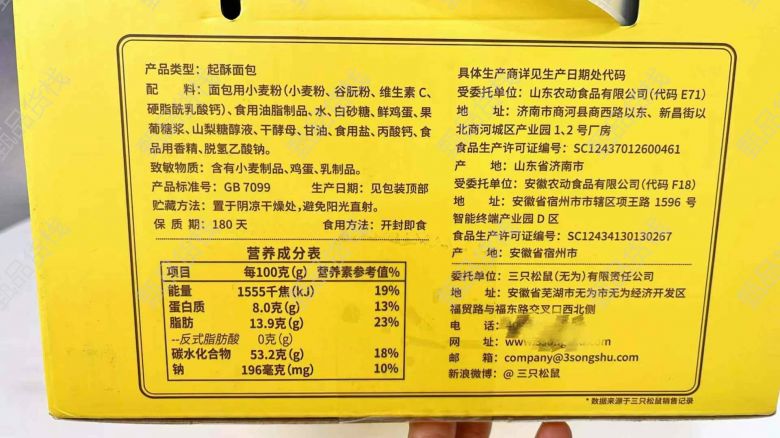 产品类型：起酥面包
配 料：面包用小麦粉（小麦粉、谷朊粉、维生素C、
硬脂酰乳酸钙）、食用油脂制品、水、白砂糖、鲜鸡蛋、果
葡糖浆、山梨糖醇液、干酵母、甘油、食用盐、丙酸钙、食
品用香精、脱氢乙酸钠。
致敏物质：含有小麦制品、鸡蛋、乳制品。
产品标准号：GB 7099 生产日期：见包装顶部
贮藏方法：置于阴凉干燥处，避免阳光直射。
保 质 期：180 天 食用方法：开封即食
营养成分表
项目 每100克(g) 营养素参考值%
能量 1555千焦(kJ) 19%
蛋白质 8.0克(g) 13%
脂肪 13.9克(g) 23%
--反式脂肪酸 0克(g)
碳水化合物 53.2克(g) 18%
钠 196毫克(mg) 10%
具体生产商详见生产日期处代码
受委托单位：山东农动食品有限公司（代码 E71）
地 址：济南市商河县商西路以东、新昌街以
北商河城区产业园 1、2 号厂房
食品生产许可证编号：SC12437012600461
产 地：山东省济南市
受委托单位：安徽农动食品有限公司（代码 F18）
地 址：安徽省宿州市市辖区项王路 1596 号
智能终端产业园 D 区
食品生产许可证编号：SC12434130130267
产 地：安徽省宿州市
委托单位：三只松鼠（无为）有限责任公司
地 址：安徽省芜湖市无为市无为经济开发区
福贸路与福东路交叉口西北侧
电 话：
网 址：www.3songshu.com
邮 箱：company@3songshu.com
新浪微博：@ 三只松鼠
*数据来源于三只松鼠销售记录